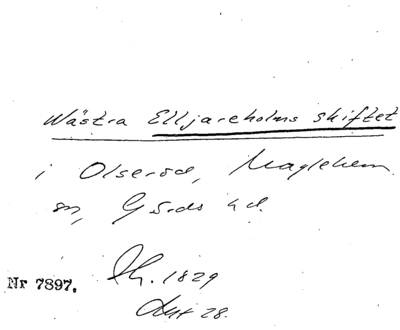 Wästra Elljareholms skiftet
i Olseröd, Maglehem
sn, Gärds hd.
Nr 7897. 1829
28.